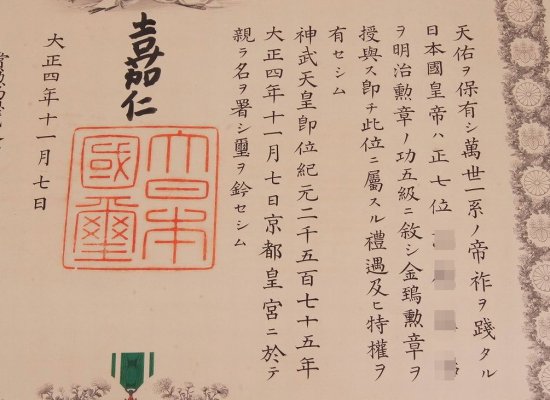 天佑ヲ保有シ萬世一系ノ帝祚ヲ踐タル
日本國皇帝ハ正七位
ヲ明治勲章ノ功五級ニ敘シ金鵄勲章ヲ
授與ス即チ此位ニ屬スル禮遇及ヒ特權ヲ
有セシム
神武天皇即位紀元二千五百七十五年
大正四年十一月七日京都皇宮ニ於テ
親ラ名ヲ署シ璽ヲ鈐セシム
嘉仁
大日本
國璽
大正四年十一月七日